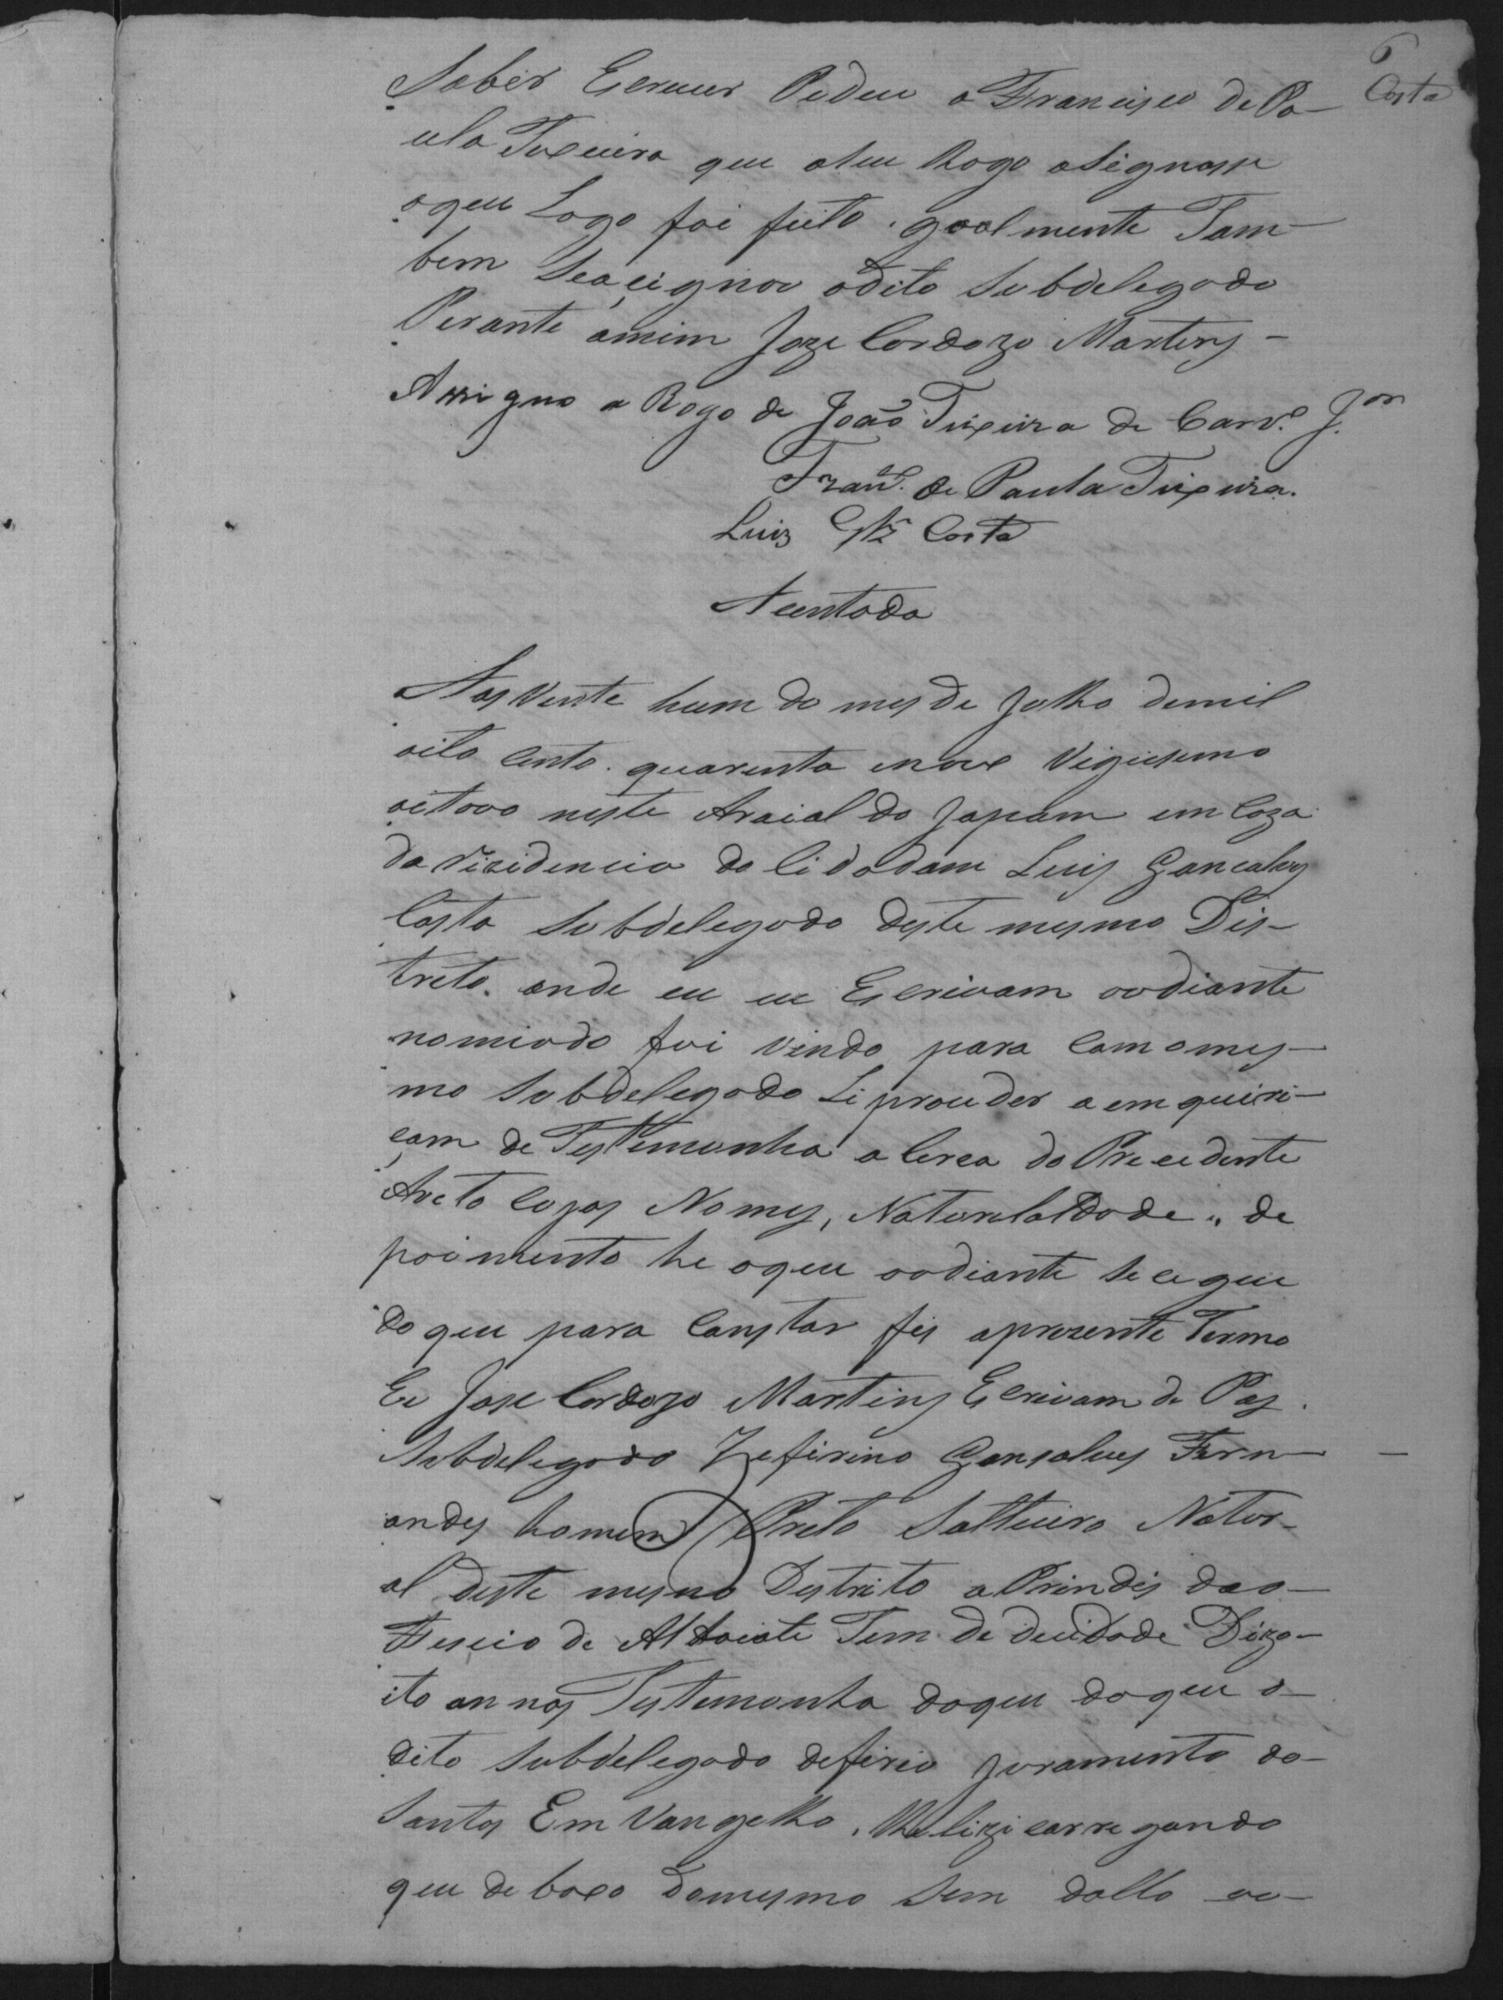 6
Costa
Saber Escrever Pedeu a Francisco de Pa-
ula Texeira que a seu Rogo asignase
oque Logo foi feito. goalmente Tam-
bem Seaçignou odito Subdelegado
Perante amim Joze Cardozo Martins -
Assigno a Rogo de João Teixeira de Carv.º J.or
Fran.co de Paula Teixeira.
Luiz Glz Costa
Acentada
Aos vente hum do mes de Julho demil
oito cento. quarenta enove Vigiesimo
oitavo neste Araial do Japam em Caza
da rezidencia do Cidadam Luis Goncalves
Costa Subdelegado deste mesmo Dis-
treto. onde eu eu Escrivam aodiante
nomiado fui vindo para Com omes-
mo Subdelegado Se prouder a emquiri-
çam de Testemunha a Cerca do Precedente
Aoto Cojos Nomes, Naturalaldade, de
poimento he oque aodiante se cegue
do que para Constar fis aprezente Termo
Eu Joze Cardozo Martins Escrivam de Pas.
Subdelegado Zeferino Gonsalves Fern-
andes homem Preto Solteiro Natur-
al deste mesmo Destrito aPrendis dao-
Feseio de Alfaiate Tem de deidade Dizo-
ito annos Testemonha doque doque o-
dito Subdelegado deferio Juramento do-
Santos Em Vangelho, emcarregando
que de baxo domesmo Sem dollo ao-